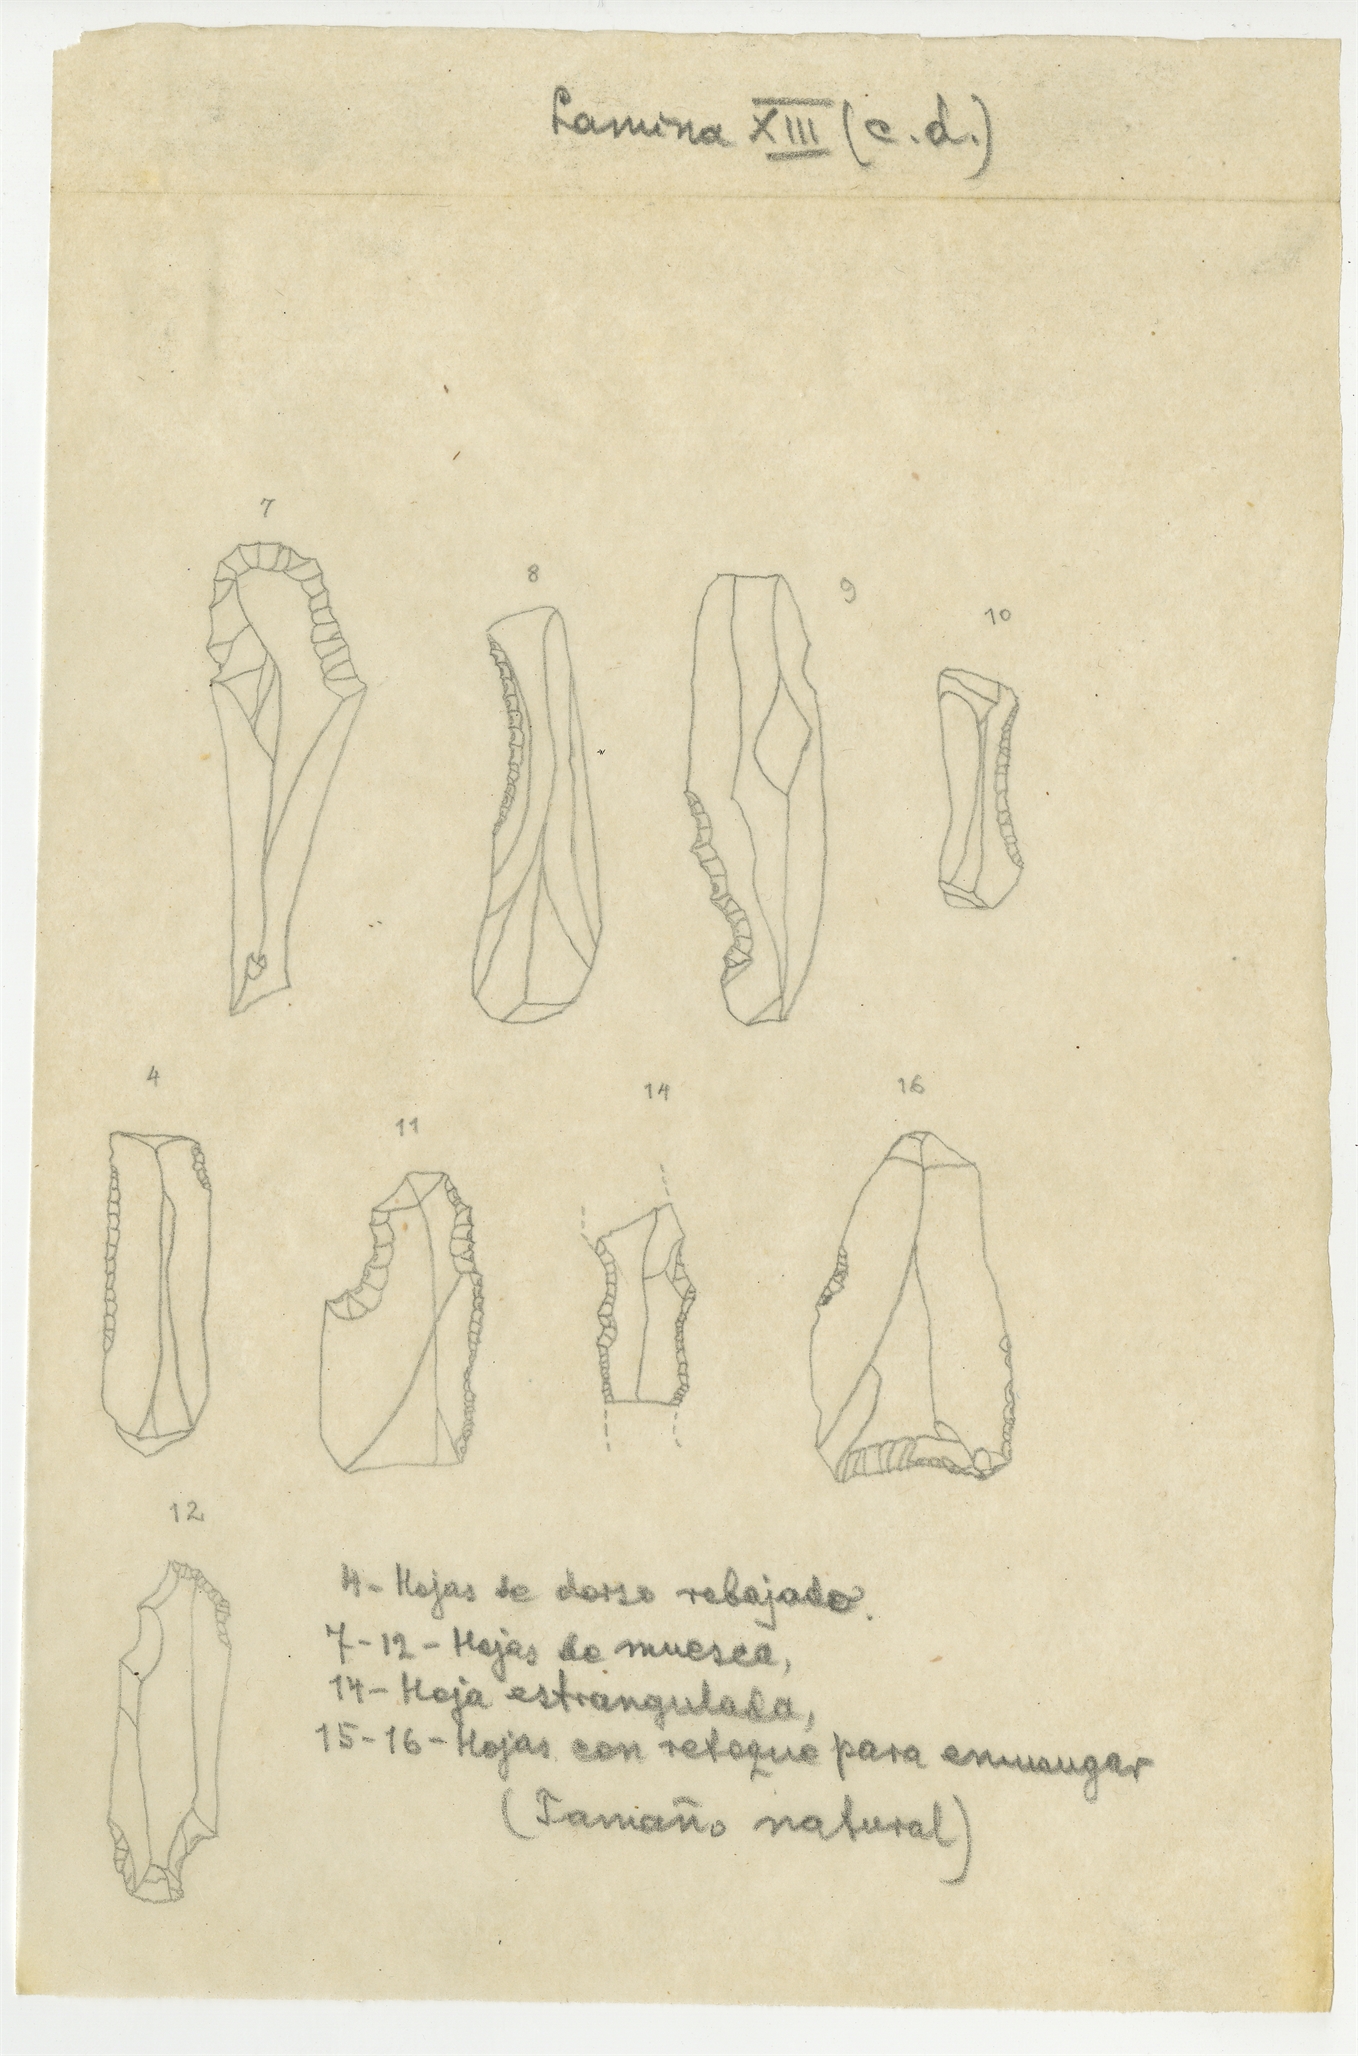 Lamina XIII (c.d.)
7
8
9
10
4
11
14
16
12
4- Hojas de dorso rebajado.
7-12- Hojas de muesca,
14- Hoja estrangulada,
15-16- Hojas con retoque para enmangar
(Tamaño natural)